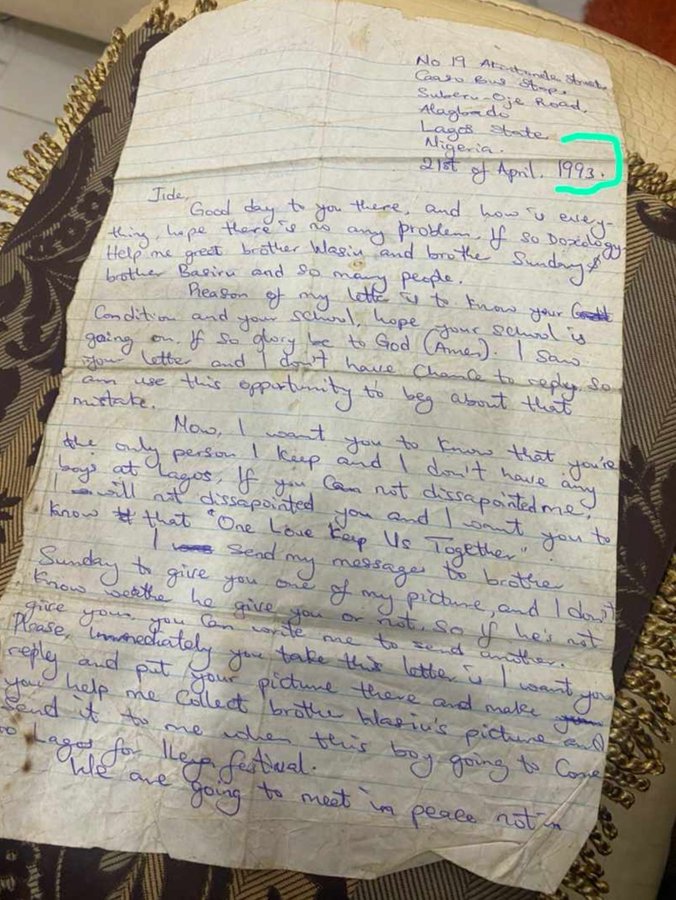 No 19 Street
Bus Stop.
Suberu-Oje Road,
Alagbado
Lagos State
Nigeria.
21st of April, 1993.
Jide,
Good day to you there, and how is every-
thing, hope there is no any problem, If so Doxology
Help me greet brother Wasiu and brothe Sunday &
brother Basiru and so many people.
Reason of my letter is to know your
Condition and your school, hope your school is
going on, If so glory be to God (Amen). I saw
your letter and I don't have Chance to reply. so
am use this opportunity to beg about that
mistake.
Now, I want you to know that you're
the only person I keep and I don't have any
boys at Lagos, If you Can not dissapointed me,
I will not dissapointed you and I want you to
know that "One Love Keep Us Together".
I send my messages to brother
Sunday to give you one of my picture, and I don't
know he give you or not, so if he's not
give you, you Can write me to send another.
Please, Immediately you take this letter is I want you
reply and put your picture there and make
you help me Collect brother Wasiu's picture and
send it to me when this boy going to Come
to Lagos for Ileya festival.
We are going to meet in peace not in